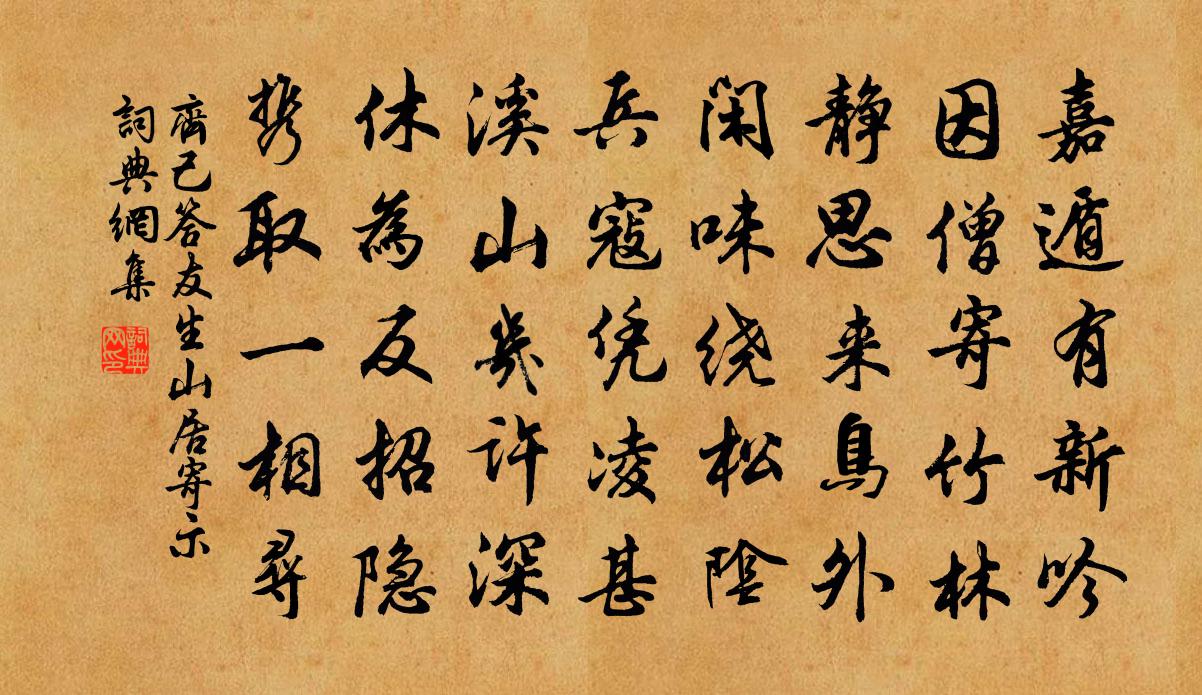 嘉遁有新吟
因僧寄竹林
静思来鳥外
闲味绕松陰
兵寇凭凌甚
溪山幾许深
休為反招隐
携取一相尋
齊己答友生山居寄示
詞典網集
詞典网印